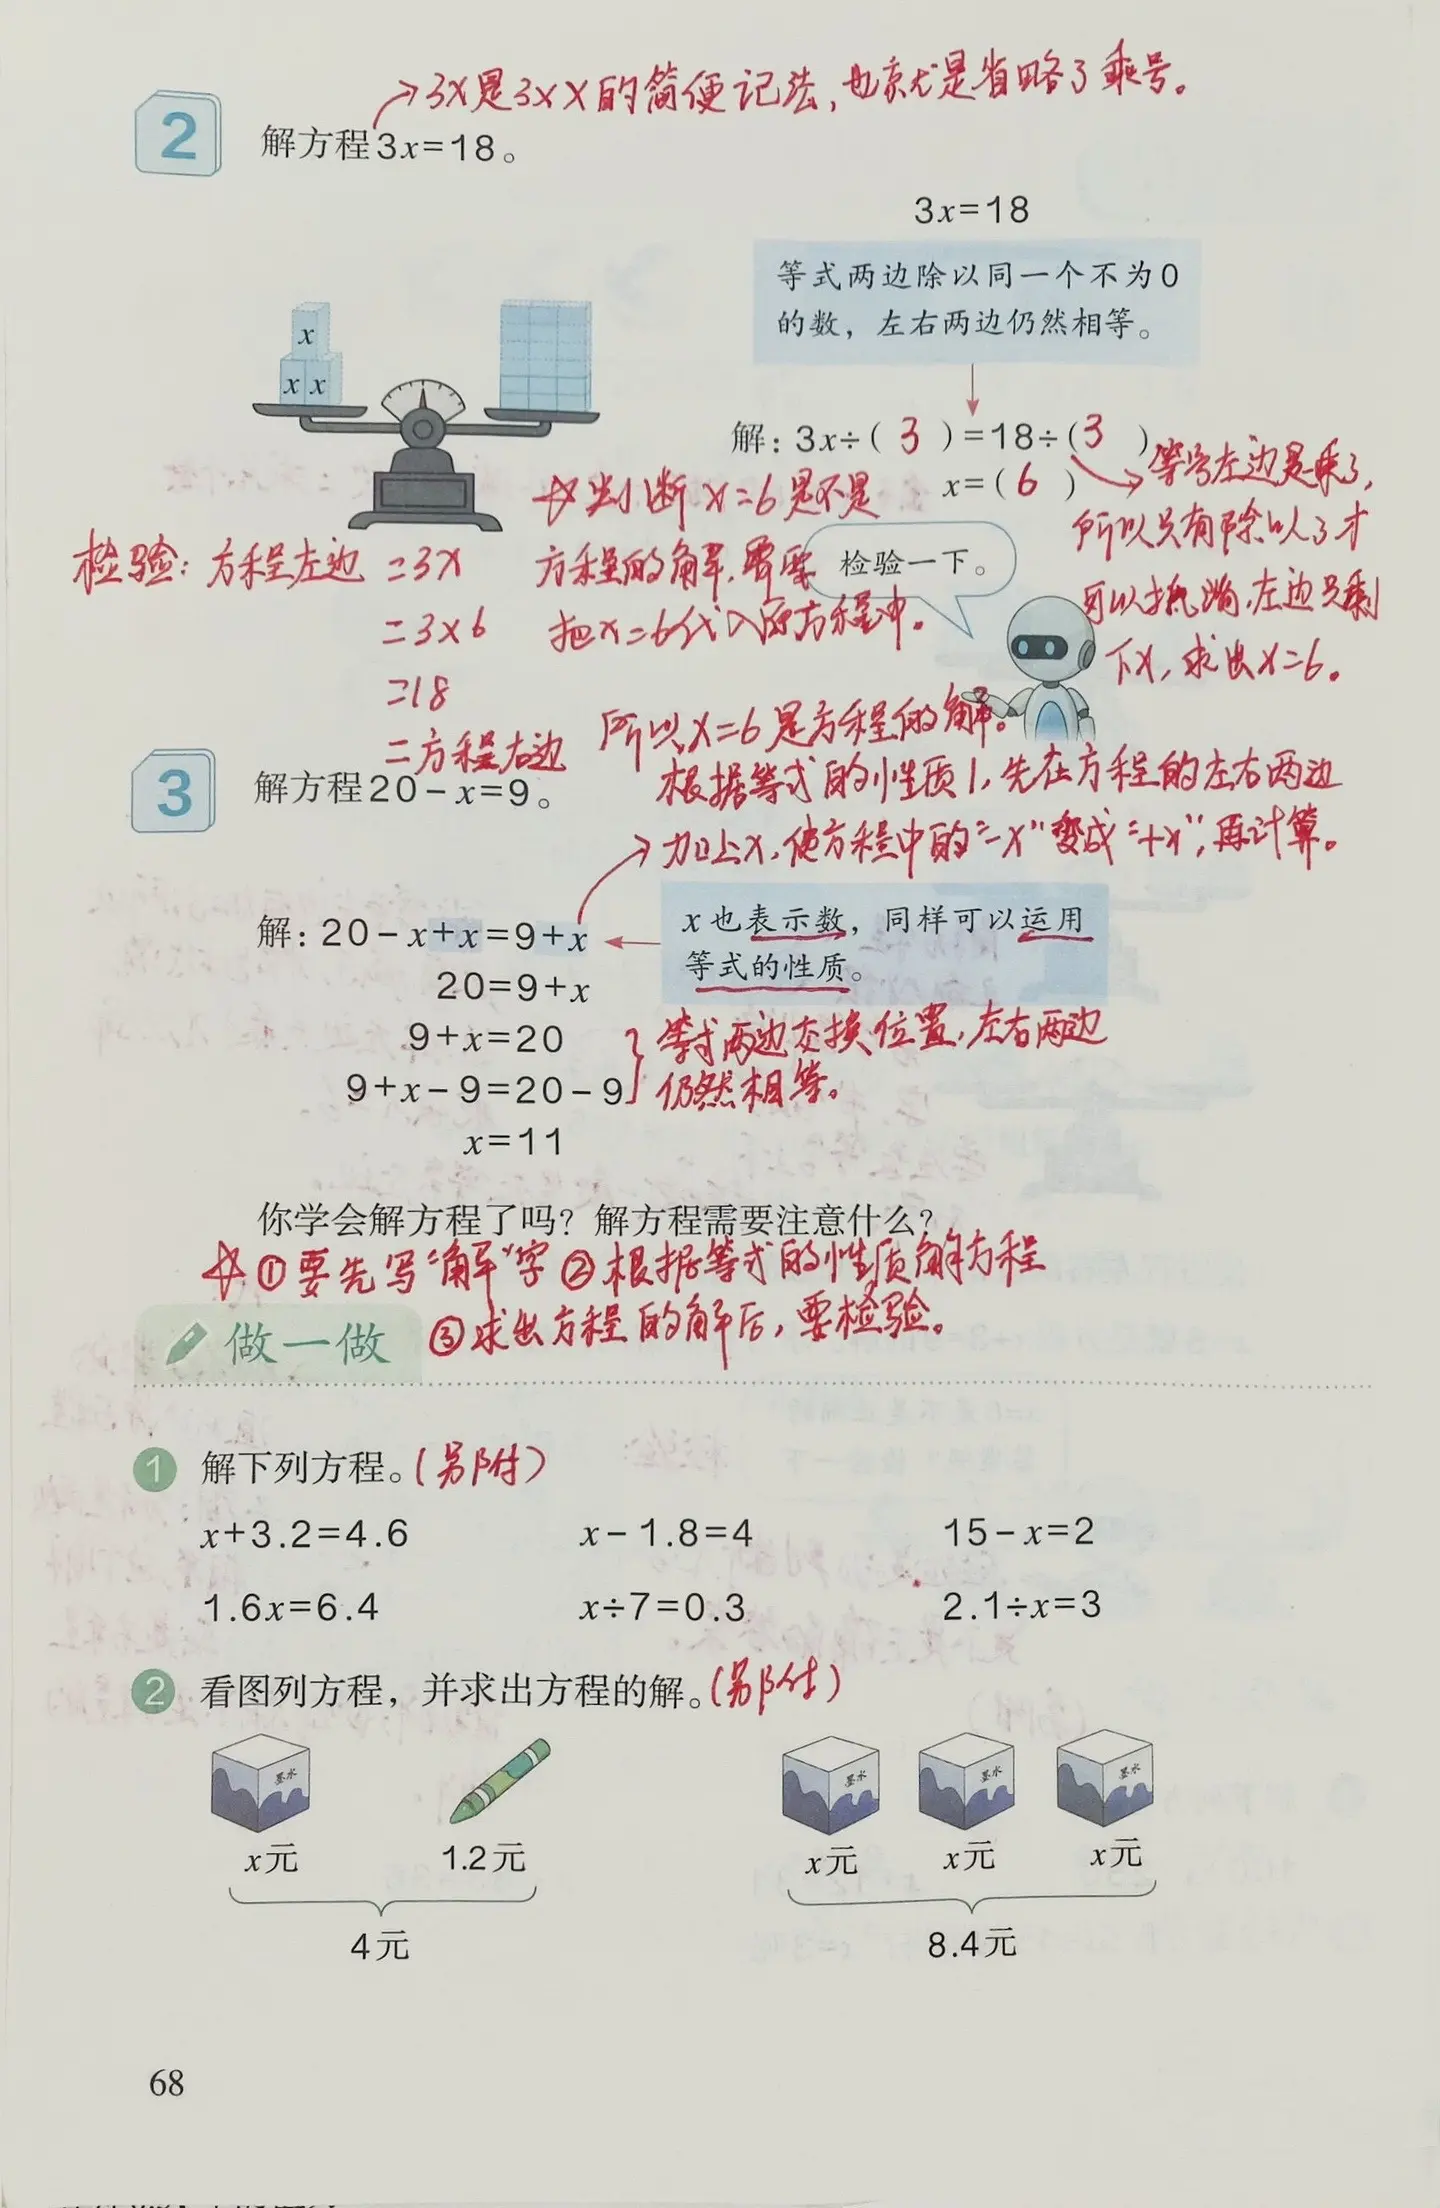 →3x是3×x的简便记法，也就是省略了乘号。
2
解方程3x=18。
3x=18
等式两边除以同一个不为0
的数，左右两边仍然相等。
x
x x
解：3x÷( 3 )=18÷(3 )
x=( 6 )
→等号左边是乘3，
所以只有除以3才
可以抵消，左边只剩
下x，求出x=6。
☆判断x=6是不是
方程的解，需要
把x=6代入原方程中。
检验一下。
检验：方程左边=3x
=3×6
=18
=方程右边
所以x=6是方程的解。
3
解方程20-x=9。
根据等式的性质1，先在方程的左右两边
→加上x，使方程中的“-x”变成“+x”，再计算。
解：20-x+x=9+x
x也表示数，同样可以运用
等式的性质。
20=9+x
9+x=20
9+x-9=20-9
x=11
等式两边交换位置，左右两边
仍然相等。
你学会解方程了吗？解方程需要注意什么？
☆①要先写“解”字 ②根据等式的性质解方程
③求出方程的解后，要检验。
做一做
1 解下列方程。(另附)
x+3.2=4.6 x-1.8=4 15-x=2
1.6x=6.4 x÷7=0.3 2.1÷x=3
2 看图列方程，并求出方程的解。(另附)
墨水 墨水 墨水 墨水
x元 1.2元 x元 x元 x元
4元 8.4元
68